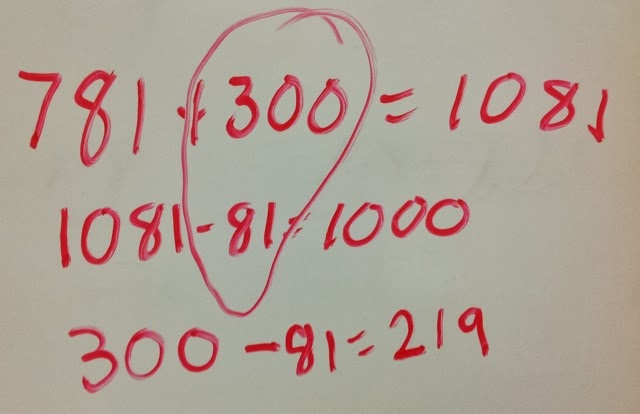 781 + 300 = 1081
1081 - 81 = 1000
300 - 81 = 219